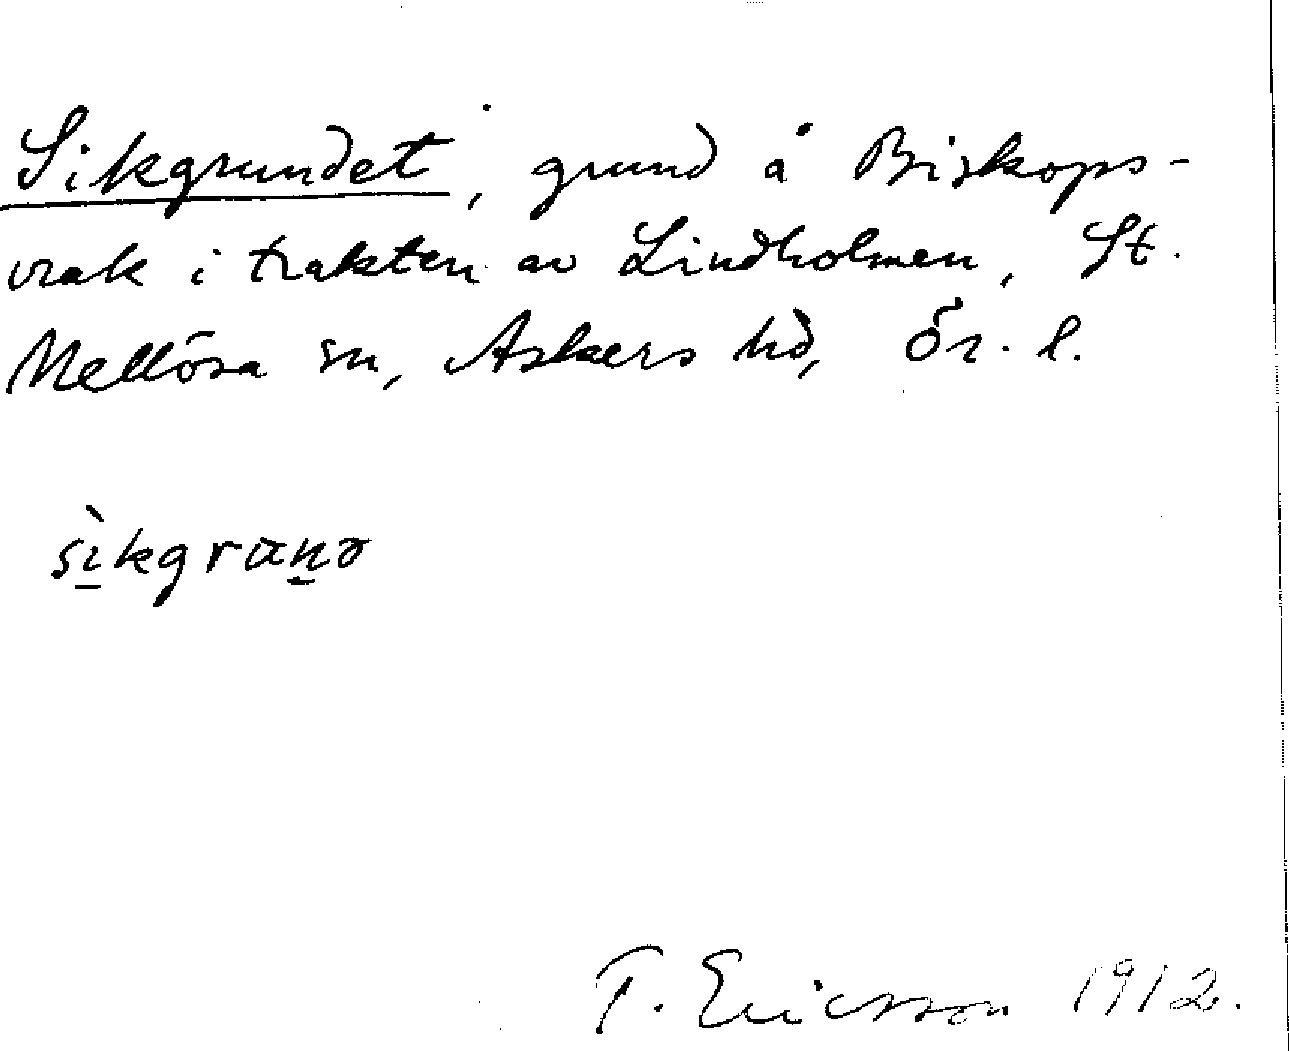 Sikgrundet, grund å Biskops-
vrak i trakten av Lindholmen, St.
Mellösa sn, Askers hd, Ör. l.
sìkgrunə
T. Ericsson 1912.